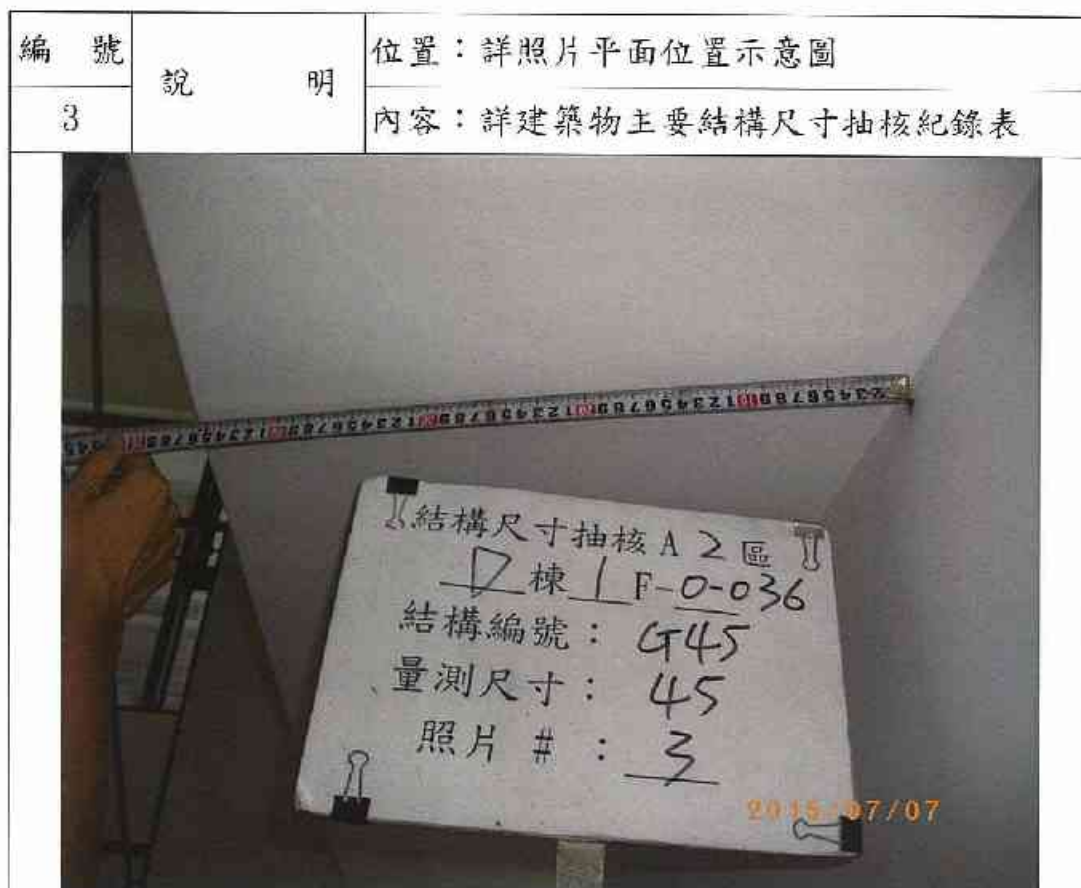 編號
說明
位置：詳照片平面位置示意圖
3
內容：詳建築物主要結構尺寸抽核紀錄表
結構尺寸抽核A 2區
D棟1F-0-036
結構編號：G45
量測尺寸：45
照片#：3
2015/07/07